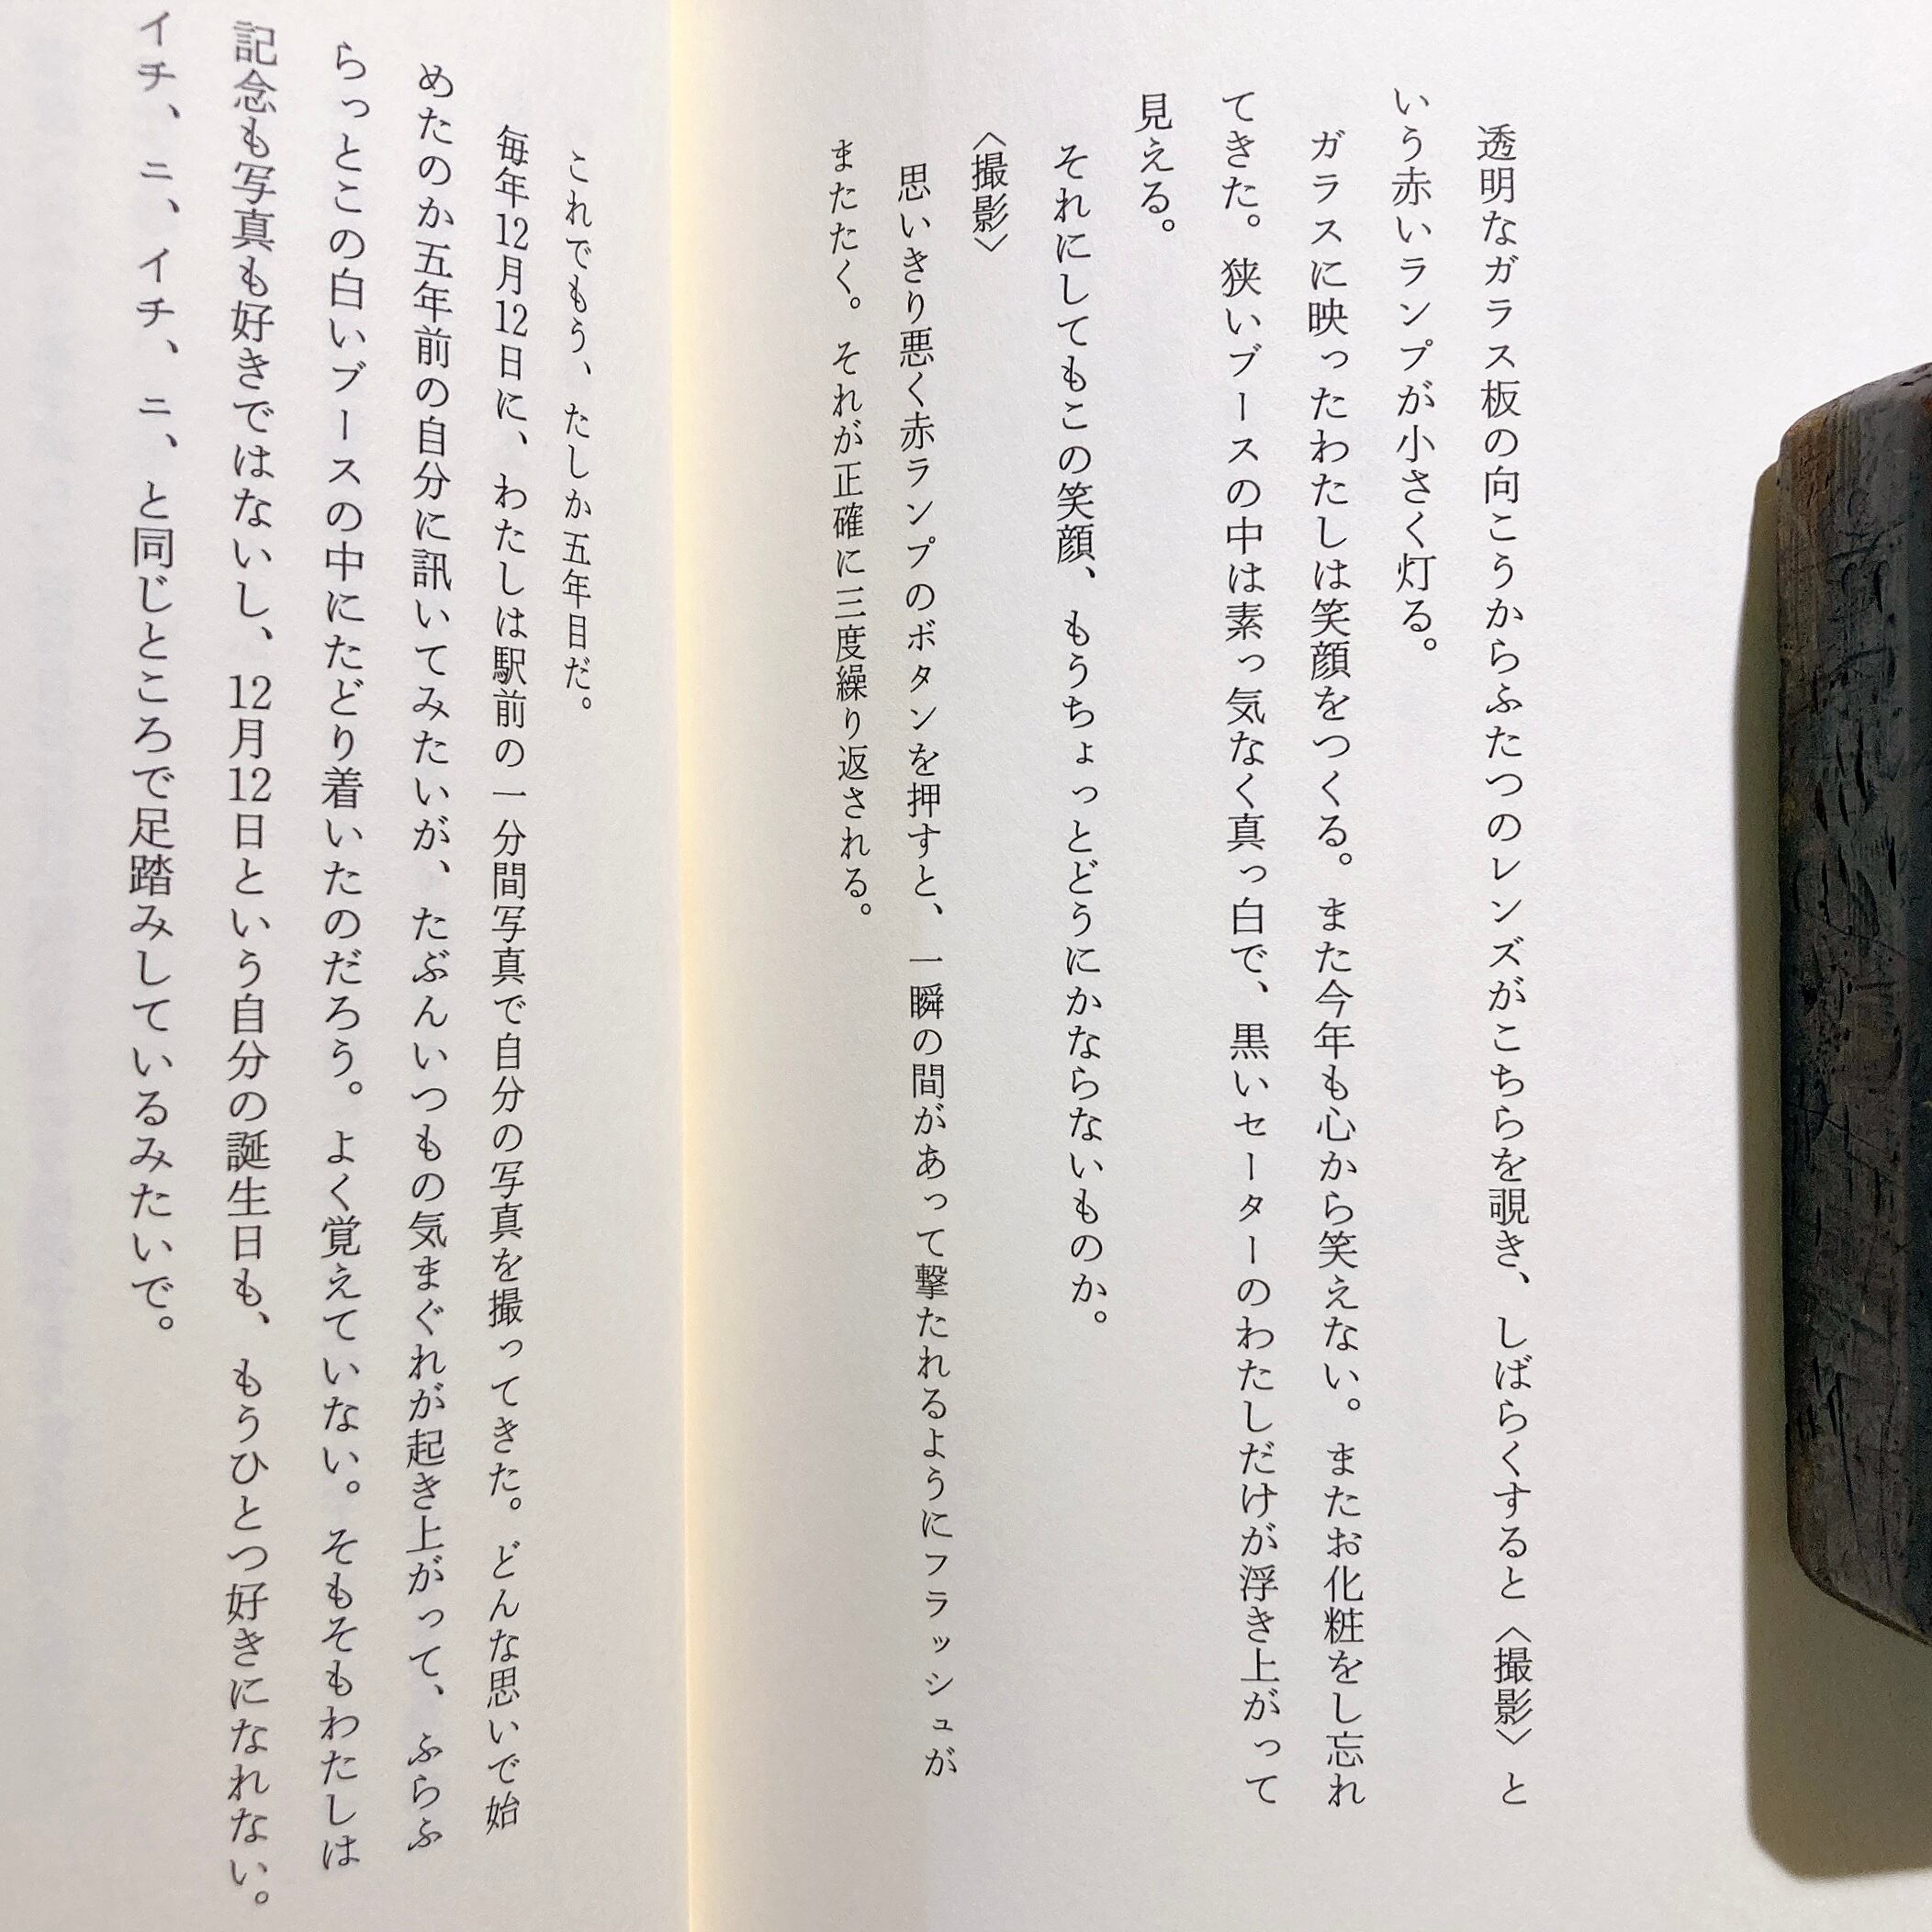 透明なガラス板の向こうからふたつのレンズがこちらを覗き、しばらくすると〈撮影〉と
いう赤いランプが小さく灯る。
ガラスに映ったわたしは笑顔をつくる。また今年も心から笑えない。またお化粧をし忘れ
てきた。狭いブースの中は素っ気なく真っ白で、黒いセーターのわたしだけが浮き上がって
見える。
それにしてもこの笑顔、もうちょっとどうにかならないものか。
〈撮影〉
思いきり悪く赤ランプのボタンを押すと、一瞬の間があって撃たれるようにフラッシュが
またたく。それが正確に三度繰り返される。
これでもう、たしか五年目だ。
毎年12月12日に、わたしは駅前の一分間写真で自分の写真を撮ってきた。どんな思いで始
めたのか五年前の自分に訊いてみたいが、たぶんいつもの気まぐれが起き上がって、ふらふ
らっとこの白いブースの中にたどり着いたのだろう。よく覚えていない。そもそもわたしは
記念も写真も好きではないし、12月12日という自分の誕生日も、もうひとつ好きになれない。
イチ、ニ、イチ、ニ、と同じところで足踏みしているみたいで。